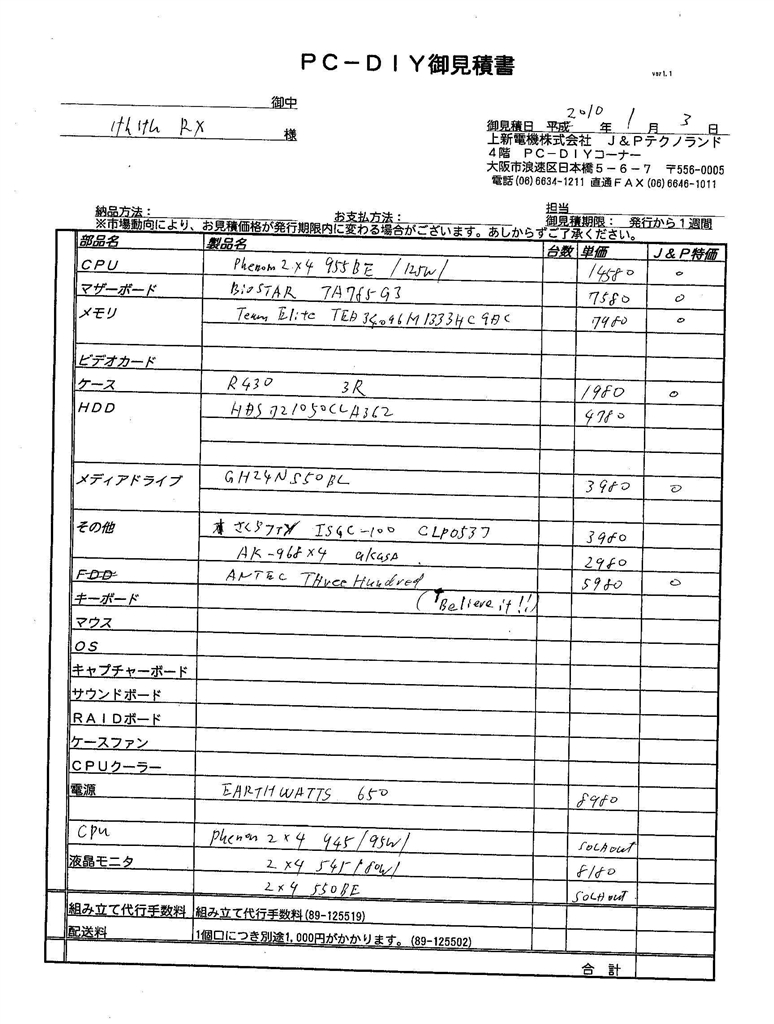 PC-DIY御見積書
ver1.1
御中
様
RX
2010 1 3
御見積日 平成 年 月 日
上新電機株式会社 J&Pテクノランド
4階 PC-DIYコーナー
大阪市浪速区日本橋5-6-7 〒556-0005
電話(06)6634-1211 直通FAX(06)6646-1011
納品方法: お支払方法: 担当
御見積期限: 発行から1週間
※市場動向により、お見積価格が発行期限内に変わる場合がございます。あしからずご了承ください。
部品名 製品名 台数 単価 J&P特価
CPU Phenom2×4 955BE /125W/ 14580 ○
マザーボード BioSTAR TA785G3 7580 ○
メモリ Team Elite 7980 ○
ビデオカード
ケース R430 3R 1980 ○
HDD 4780
メディアドライブ GH24NS50BL 3980 ○
その他 ISGC-100 CLP0537 3980
AK-968×4 akasa 2980
FDD ANTEC Three Hundred 5980 ○
キーボード (↑Believe it!!)
マウス
OS
キャプチャーボード
サウンドボード
RAIDボード
ケースファン
CPUクーラー
電源 EARTHWATTS 650 8980
Cpu Phenom 2×4 945/95W/ SOLDout
液晶モニタ 2×4 545/80W/ 8180
2×4 550BE SOLDout
組み立て代行手数料 組み立て代行手数料(89-125519)
配送料 1個口につき別途1,000円がかかります。(89-125502)
合計